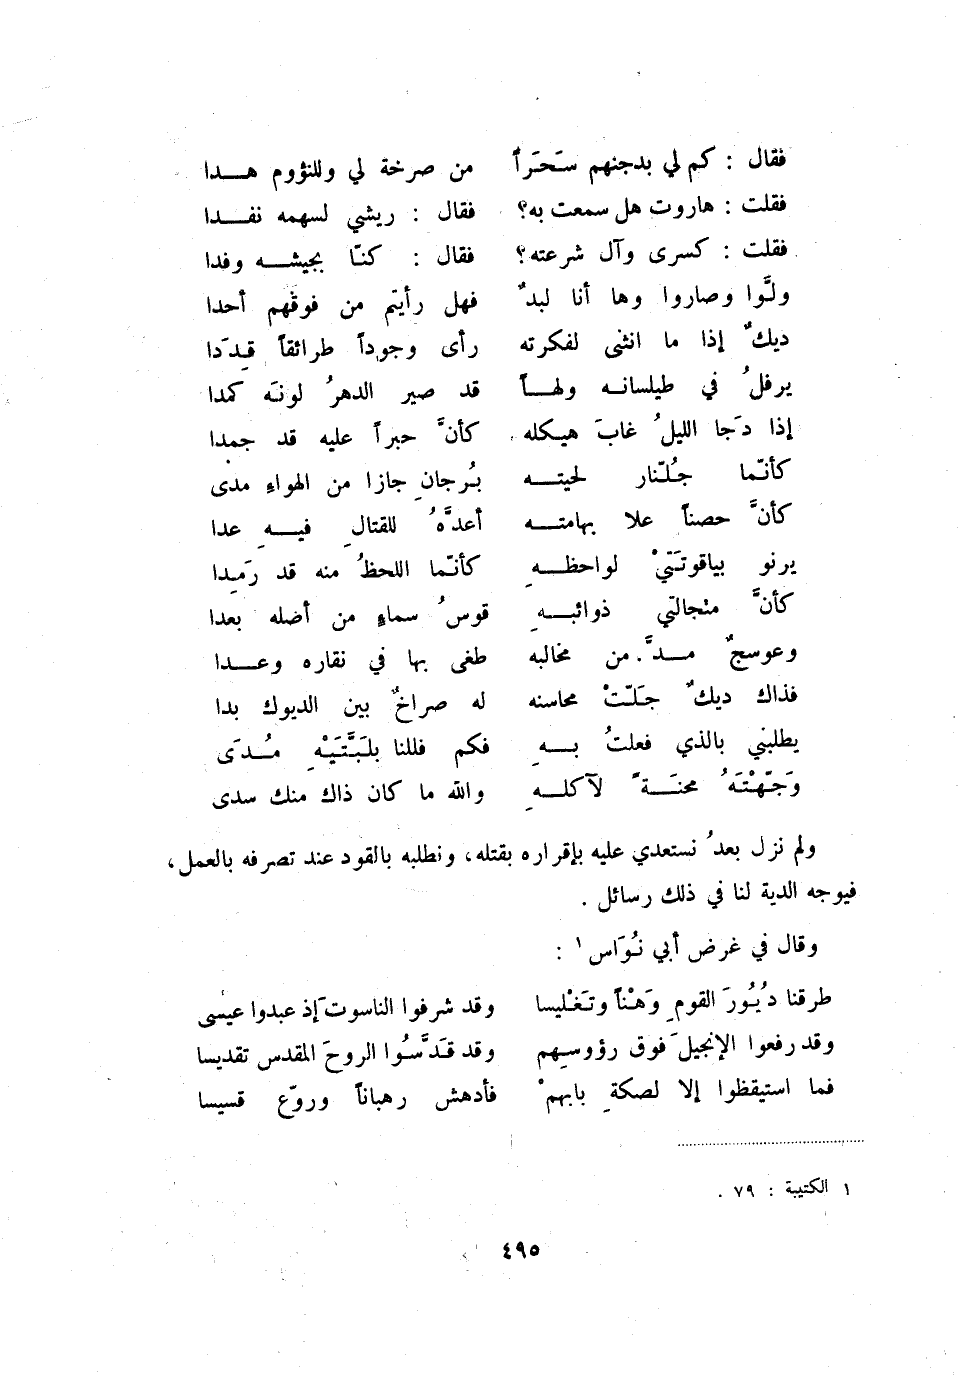 فقال : كم لي بدجنهم سَحَراً من صرخة لي وللنؤوم هدا
فقلت : هاروت هل سمعت به؟ فقال : ريشي لسهمه نفدا
فقلت : كسرى وآل شرعته؟ فقال : كنّا بجيشه وفدا
ولَّوا وصاروا وها أنا لبدٌ فهل رأيتم من فوقهم أحدا
ديكٌ إذا ما انثنى لفكرته رأى وجوداً طرائقاً قِدَدا
يرفلُ في طيلسانه ولهاً قد صير الدهرُ لونَه كمدا
إذا دَجا الليلُ غابَ هيكله كأنَّ حبراً عليه قد جمدا
كأنّما جُلّنار لحيته بُرجانِ جازا من الهواءِ مدى
كأنَّ حصناً علا بهامته أعدَّهُ للقتالِ فيهِ عدا
يرنو بياقوتَتَيْ لواحظهِ كأنّما اللحظُ منه قد رَمِدا
كأنَّ منجالتي ذوائبهِ قوسُ سماءٍ من أضله بعدا
وعوسجٌ مدَّ من مخالبه طغى بها في نقاره وعدا
فذاك ديكٌ جَلَّتْ محاسنه له صراخٌ بين الديوك بدا
يطلبني بالذي فعلتُ بهِ فكم فللنا بلَبَّتَيْهِ مُدَى
وَجَّهْتَهُ محنَةً لآكلهِ والله ما كان ذاك منك سدى
ولم نزل بعدُ نستعدي عليه بإقراره بقتله، ونطلبه بالقود عند تصرفه بالعمل،
فيوجه الدية لنا في ذلك رسائل .
وقال في غرض أبي نُوَاس ١ :
طرقنا دُيُورَ القومِ وَهْناً وتَغْليسا وقد شرفوا الناسوتَ إذ عبدوا عيسى
وقد رفعوا الإنجيلَ فوق رؤوسِهم وقد قَدَّسُوا الروحَ المقدس تقديسا
فما استيقظوا إلا لصكةِ بابهمْ فأدهش رهباناً وروّع قسيسا
١ الكتيبة : ٧٩ .
٤٩٥